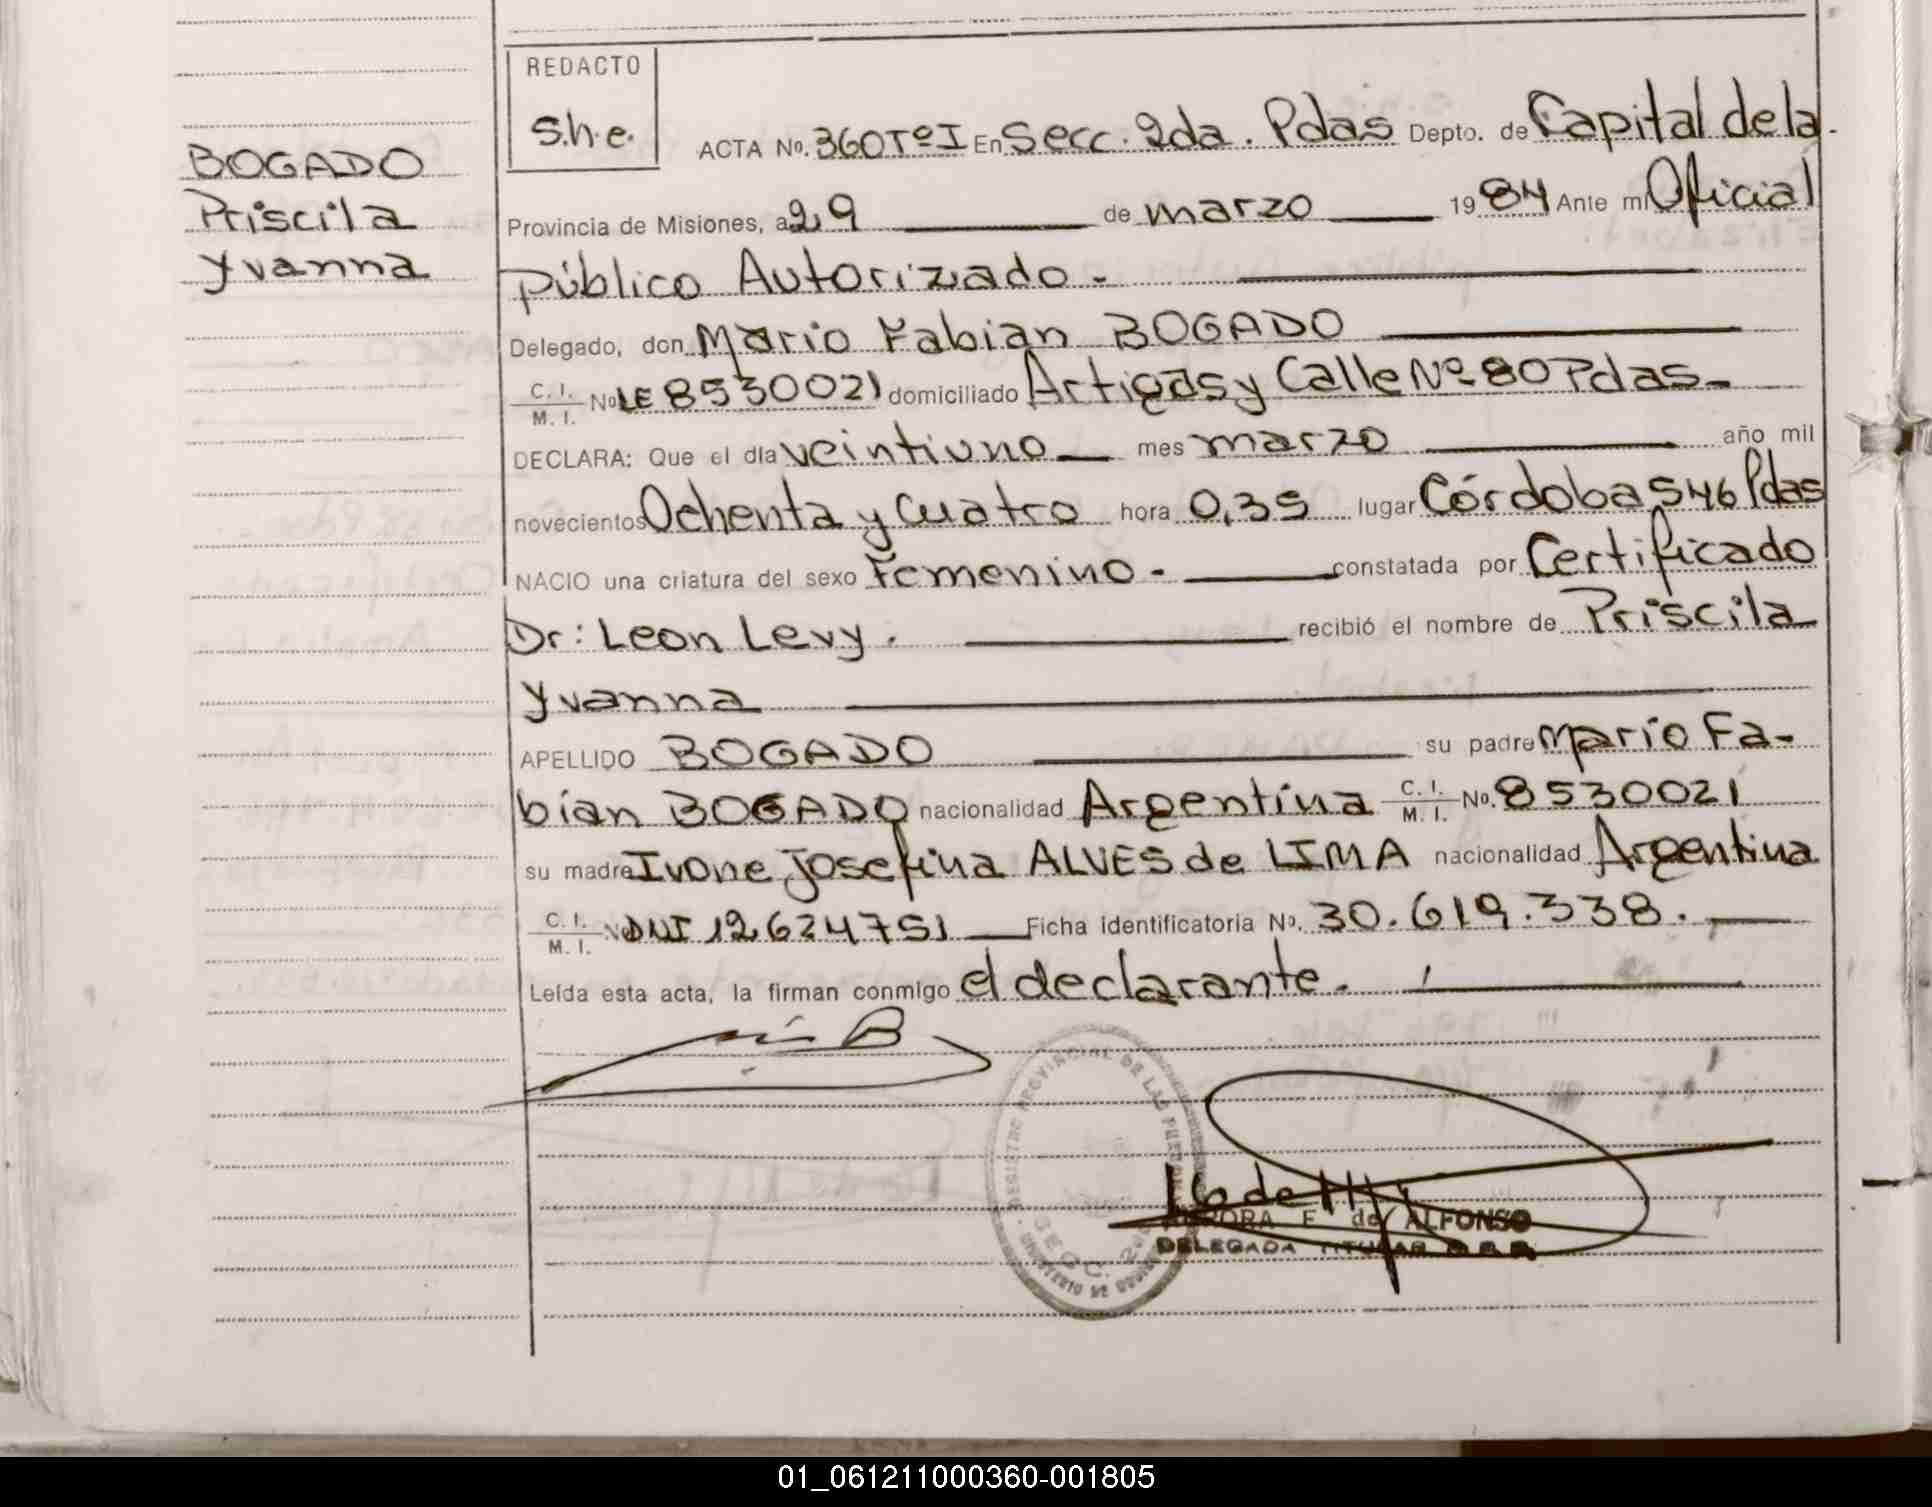 REDACTO
S.h.e.
BOGADO
Priscila
Yvanna
ACTA No. 360 Tº I En Secc. 2da. Pdas Depto. de Capital de la
Provincia de Misiones, a 29 de marzo 1984 Ante mi Oficial
Público Autorizado.-
Delegado, don Mario Fabian BOGADO
C. I. / M. I. No LE 8530021 domiciliado Artigas y Calle Nº 80 Pdas-
DECLARA: Que el día veintiuno mes marzo año mil
novecientos Ochenta y Cuatro hora 0,35 lugar Córdoba 546 Pdas
NACIO una criatura del sexo Femenino.- constatada por Certificado
Dr: Leon Levy. recibió el nombre de Priscila
Yvanna
APELLIDO BOGADO su padre Mario Fa-
bian BOGADO nacionalidad Argentina C. I. / M. I. No. 8530021
su madre Ivone Josefina ALVES de LIMA nacionalidad Argentina
C. I. / M. I. No DNI 12624751 Ficha identificatoria No. 30.619.338.
Leída esta acta, la firman conmigo el declarante.
REGISTRO PROVINCIAL DE LAS
SECC. 2
MINISTERIO DE
F. de ALFONSO
DELEGADA TITULAR
01_061211000360-001805